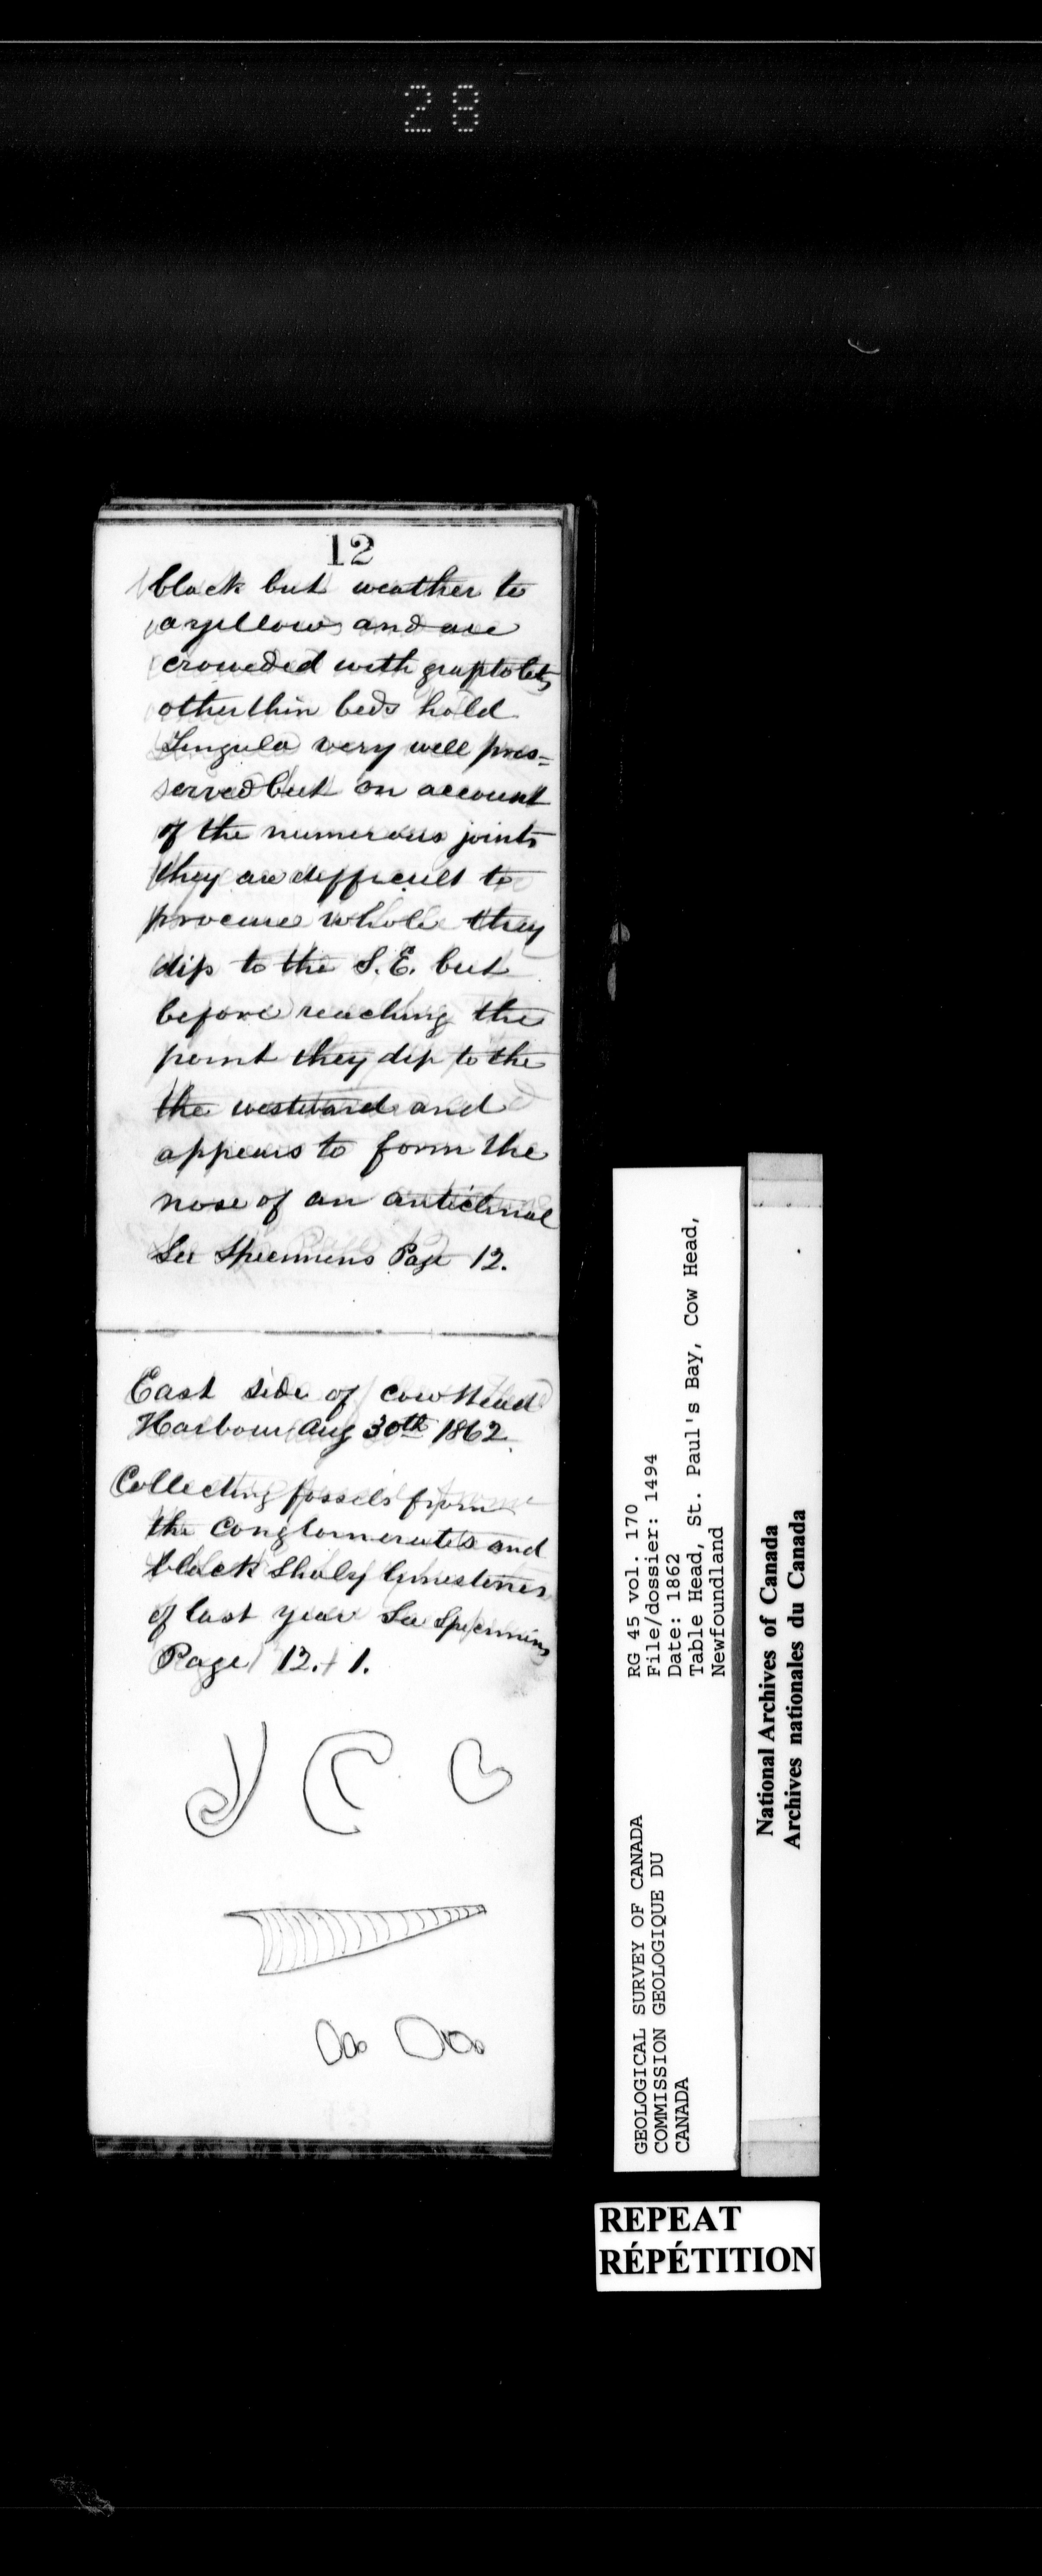 28
12
black but weather to
a yellow and are
crowded with graptolets
other thin beds hold
Lingula very well pres=
served but on account
of the numerous joints
they are difficult to
procure whole they
dip to the S.E. but
before reaching the
point they dip to the
the westward and
appears to form the
nose of an anticlinal
See Specimens Page 12.
East side of Cow Head
Harbour Aug 30th 1862
Collecting fossils from
the Conglomerates and
black Shaly limestones
of last year See Specimens
Page 12. + 1.
GEOLOGICAL SURVEY OF CANADA
COMMISSION GEOLOGIQUE DU
CANADA
RG 45 vol. 170
File/dossier: 1494
Date: 1862
Table Head, St. Paul's Bay, Cow Head,
Newfoundland
National Archives of Canada
Archives nationales du Canada
REPEAT
RÉPÉTITION